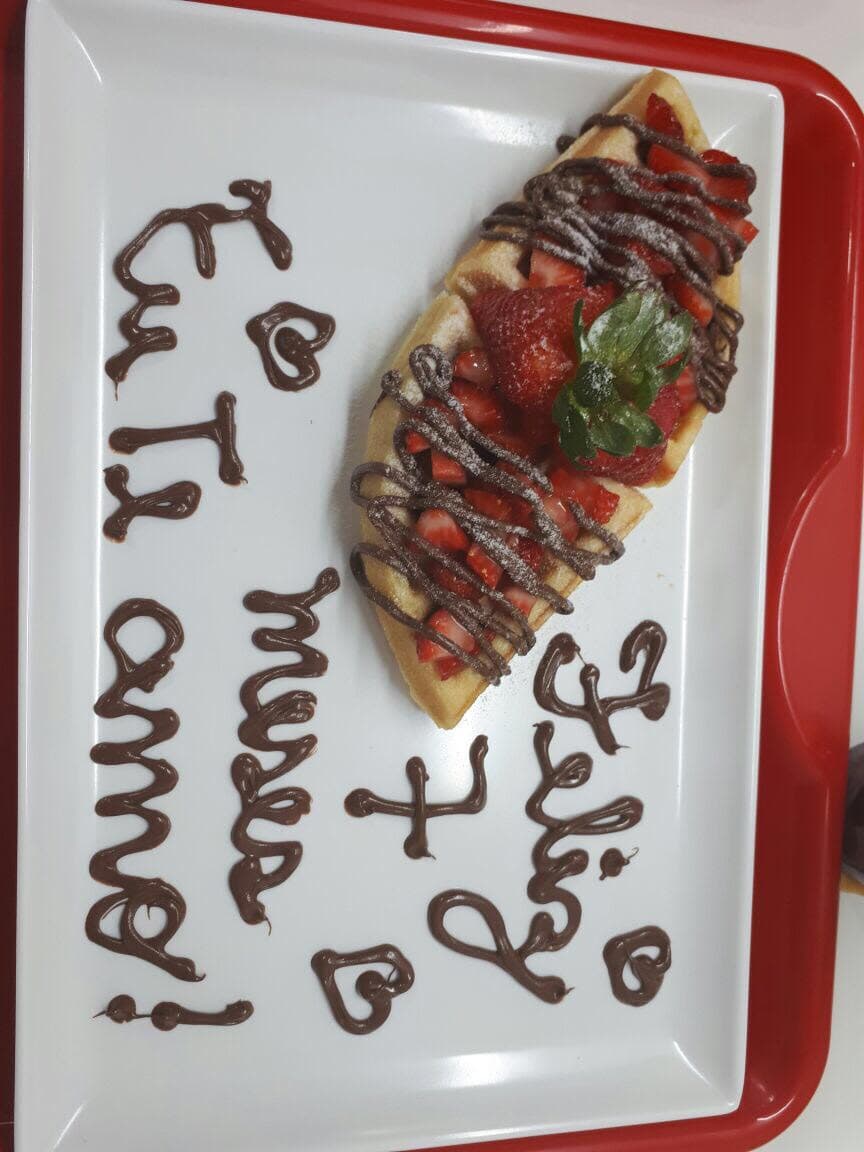 Feliz
7
meses
Eu Te amo!